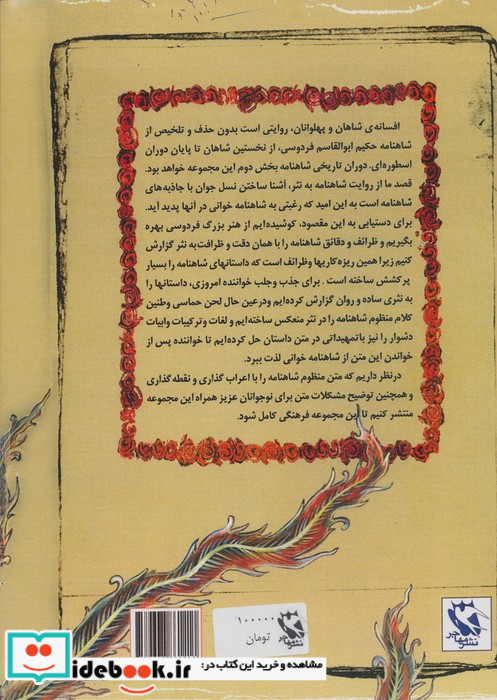 افسانه‌ی شاهان و پهلوانان، روایتی است بدون حذف و تلخیص از
شاهنامه حکیم ابوالقاسم فردوسی، از نخستین شاهان تا پایان دوران
اسطوره‌ای. دوران تاریخی شاهنامه بخش دوم این مجموعه خواهد بود.
قصد ما از روایت شاهنامه به نثر، آشنا ساختن نسل جوان با جاذبه‌های
شاهنامه است به این امید که رغبتی به شاهنامه خوانی در آنها پدید آید.
برای دستیابی به این مقصود، کوشیده‌ایم از هنر بزرگ فردوسی بهره
بگیریم و ظرائف و دقائق شاهنامه را با همان دقت و ظرافت به نثر گزارش
کنیم زیرا همین ریزه‌کاریها وظرائف است که داستانهای شاهنامه را بسیار
پر کشش ساخته است . برای جذب وجلب خواننده امروزی، داستانها را
به نثری ساده و روان گزارش کرده‌ایم ودرعین حال لحن حماسی وطنین
کلام منظوم شاهنامه را در نثر منعکس ساخته‌ایم و لغات وترکیبات وابیات
دشوار را نیز باتمهیداتی در متن داستان حل کرده‌ایم تا خواننده پس از
خواندن این متن از شاهنامه خوانی لذت ببرد.
درنظر داریم که متن منظوم شاهنامه را با اعراب گذاری و نقطه گذاری
و همچنین توضیح مشکلات متن برای نوجوانان عزیز همراه این مجموعه
منتشر کنیم تا این مجموعه فرهنگی کامل شود.
۱۰۰۰۰۰۰
تومان
نشر مهاجر
نشر مهاجر
مشاهده و خرید این کتاب در:
idebook.ir